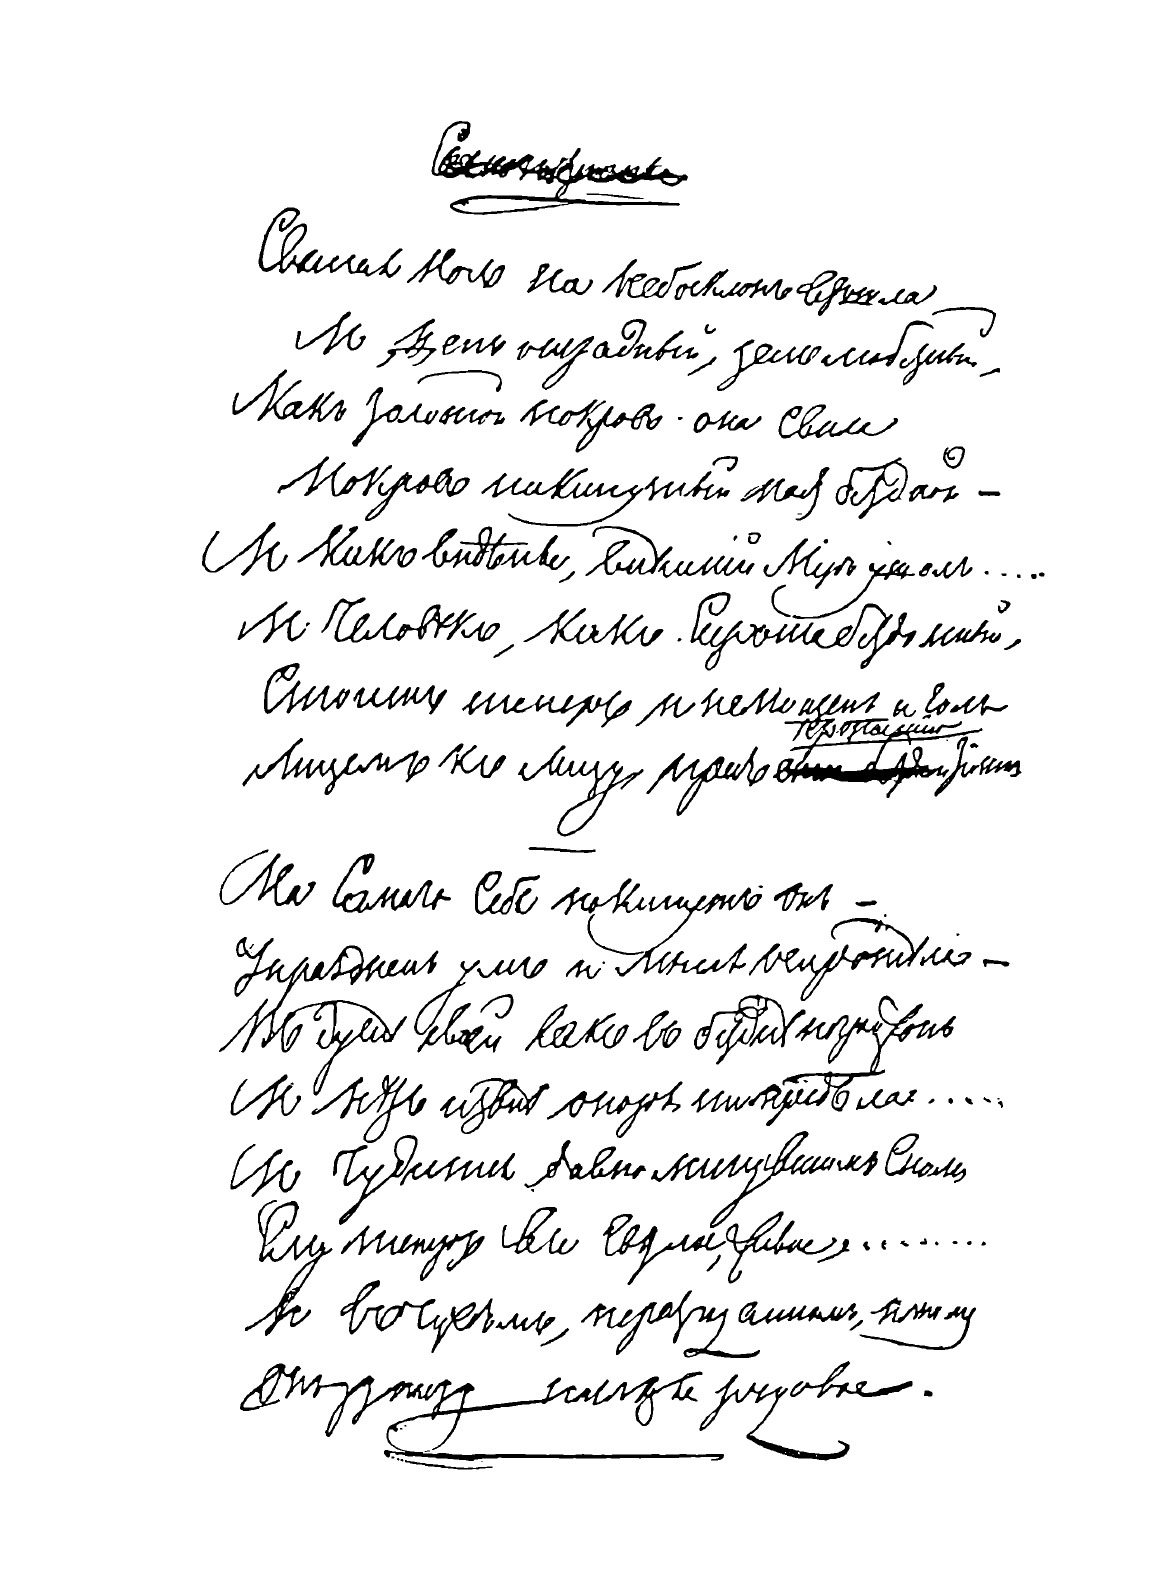 Святая ночь на небосклонъ взошла
И день отрадный, день любезный,
Какъ золотой покровъ она свила
Покровъ накинутый надъ бездной –
И какъ видѣнье, внѣшній міръ ушелъ.....
И человѣкъ, какъ сирота бездомный,
Стоитъ теперь и немощенъ и голъ
пропастію
Лицемъ къ лицу, предъ темной
На самаго себя покинутъ онъ –
Упраздненъ умъ и мысль осиротѣла –
Въ душѣ своей какъ въ безднѣ погруженъ
И нѣтъ извнѣ опоры ни предѣла.....
И чудится давно минувшимъ сномъ
Ему теперь все свѣтлое, живое.........
И въ чуждомъ, неразгаданномъ, ночномъ
Онъ узнаетъ наслѣдье родовое.